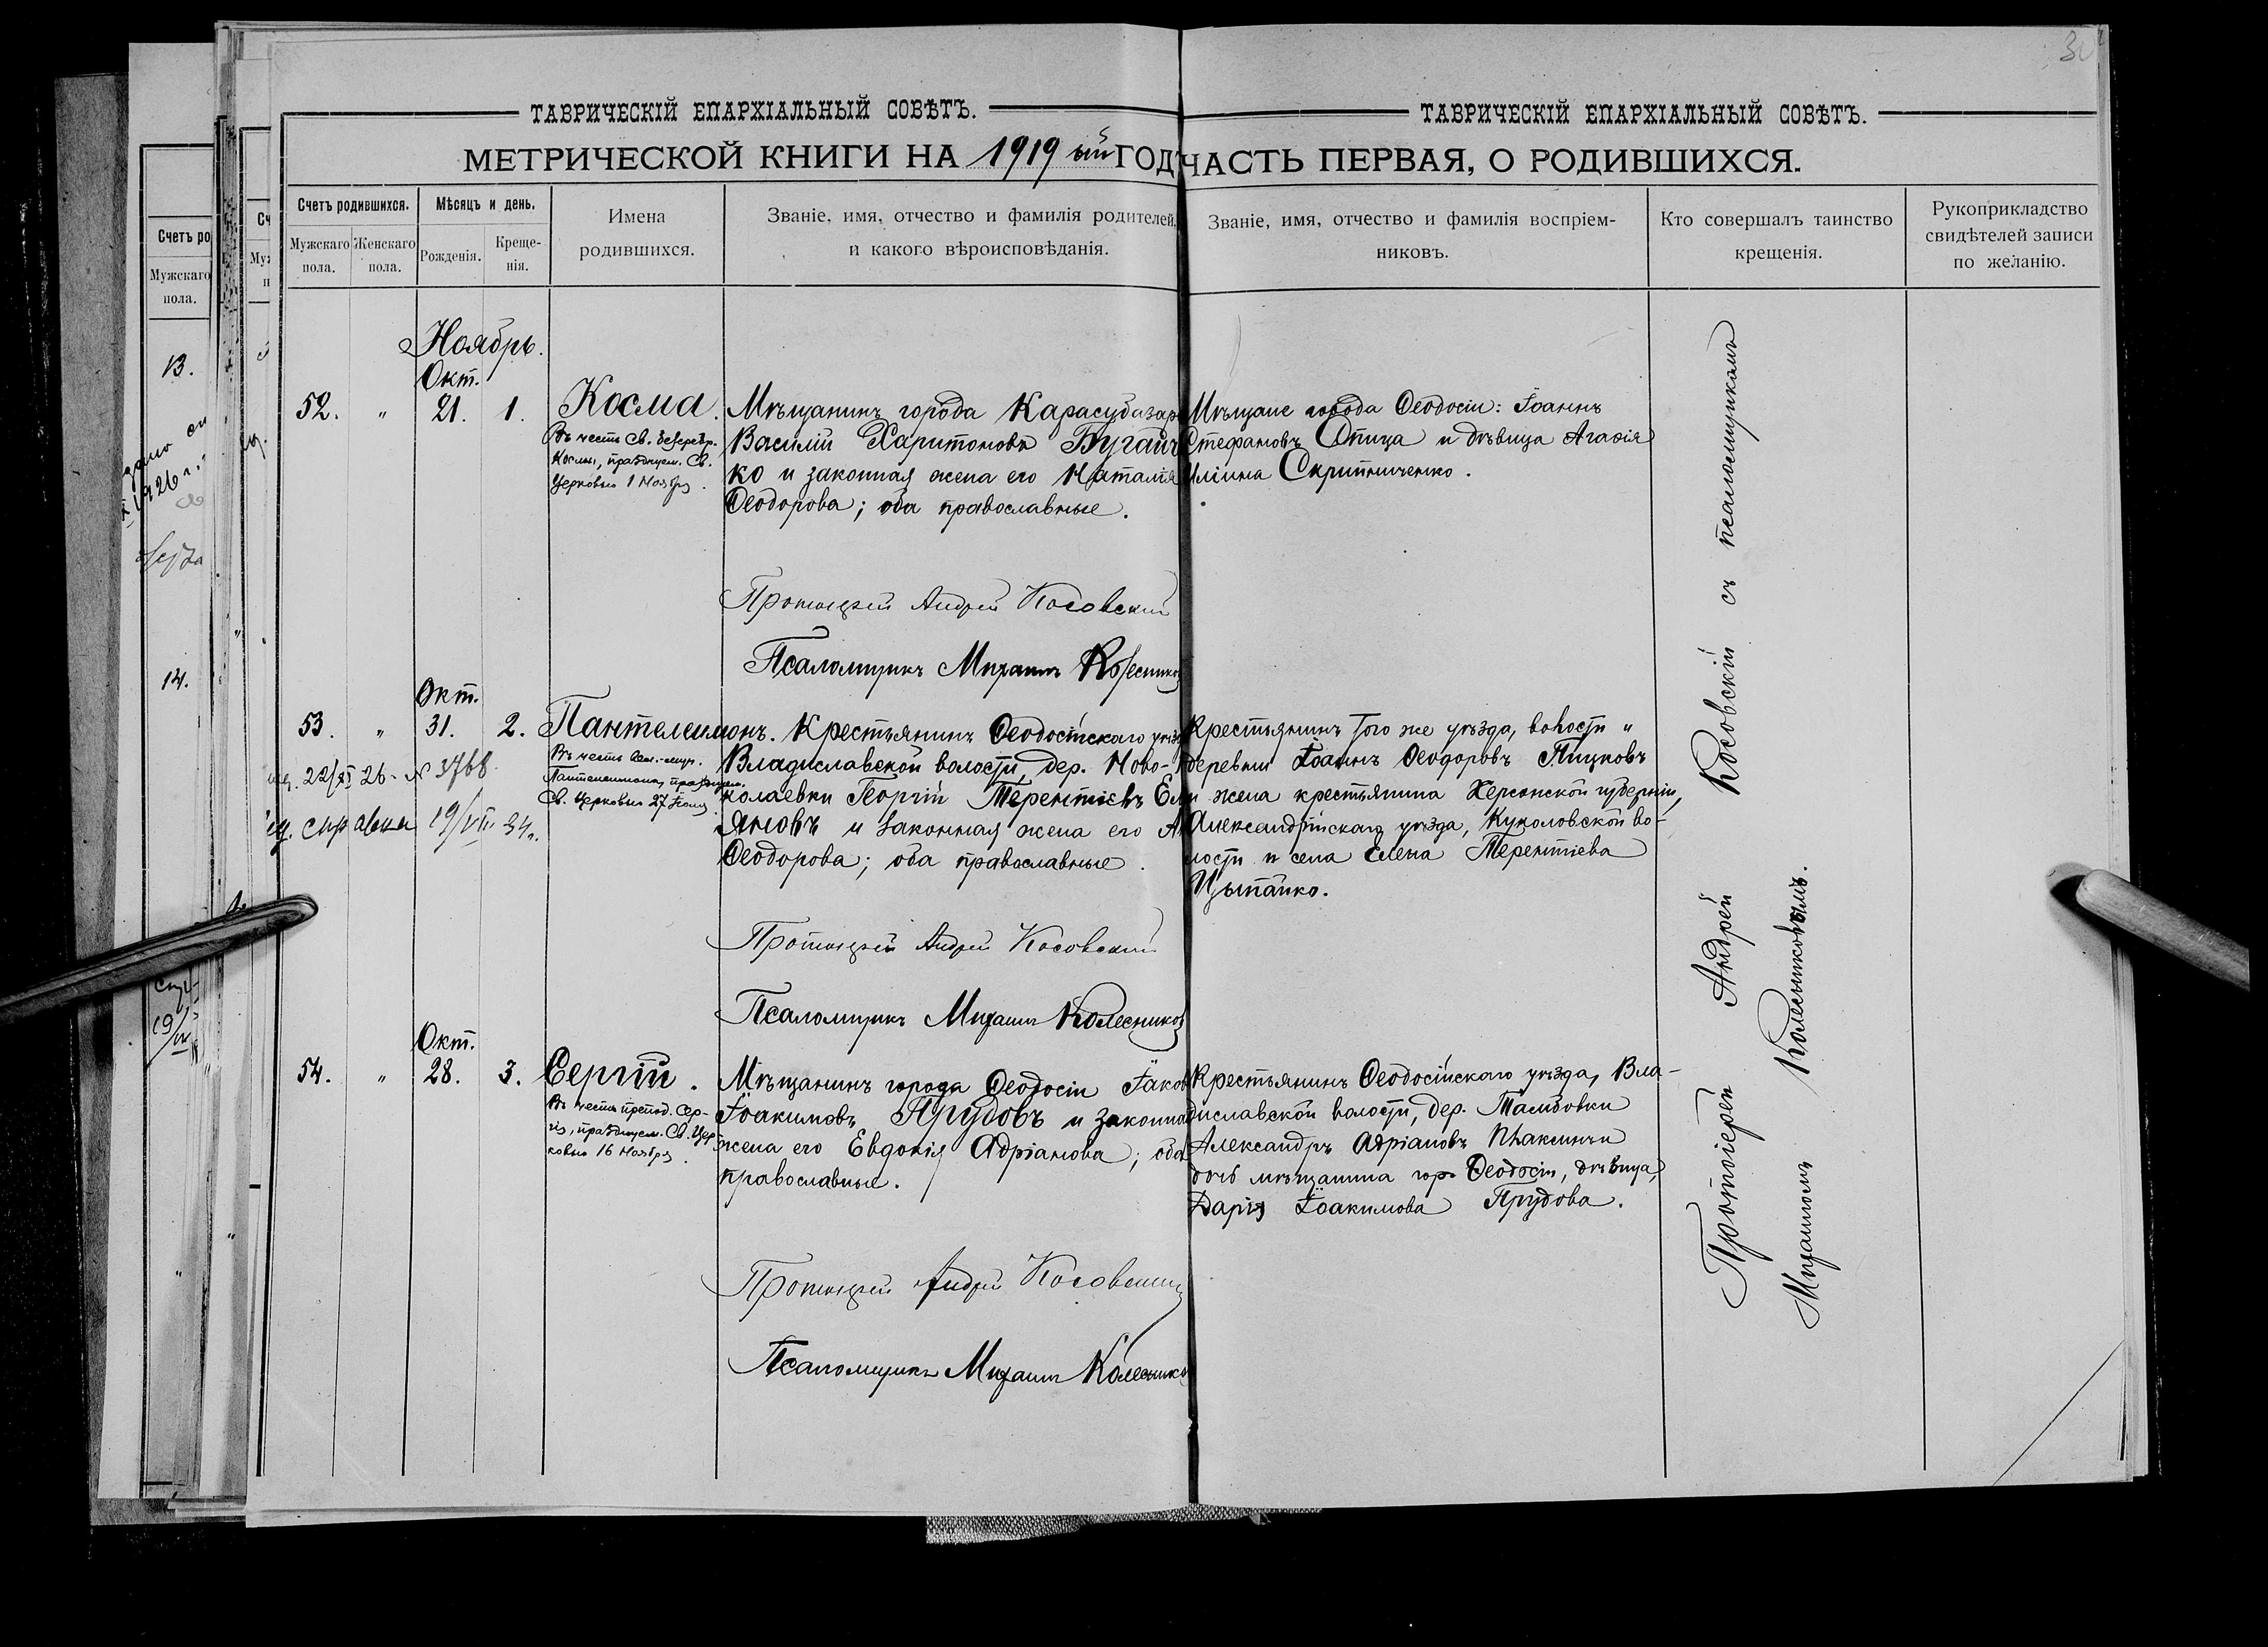 ТАВРИЧЕСКІЙ ЕПАРХІАЛЬНЫЙ СОВѢТЪ.
МЕТРИЧЕСКОЙ КНИГИ НА 1919 ый ГОДЪ
Счетъ родившихся.
Мужскаго пола.
Женскаго пола.
Мѣсяцъ и день.
Рожденія.
Креще-
нія.
Имена
родившихся.
Званіе, имя, отчество и фамилія родителей,
и какого вѣроисповѣданія.
ТАВРИЧЕСКІЙ ЕПАРХІАЛЬНЫЙ СОВѢТЪ.
ЧАСТЬ ПЕРВАЯ, О РОДИВШИХСЯ.
Званіе, имя, отчество и фамилія воспріем-
никовъ.
Кто совершалъ таинство
крещенія.
Рукоприкладство
свидѣтелей записи
по желанію.
Ноябрь.
Окт.
52. " 21. 1. Косма.
Въ честь Св. безсребр.
Космы, празднуем. Св.
Церковью 1 Ноября.
Мѣщанинъ города Карасубазара
Василій Харитоновъ Бугайч
ко и законная жена его Наталія
Ѳеодорова; оба православные.
Мѣщане города Ѳеодосіи: Іоаннъ
Стефановъ Опица и дѣвица Агаѳія
Иліина Скрипниченко.
Протоіерей Андрей Косовскій
Псаломщикъ Михаилъ Колесников
Окт.
53. " 31. 2. Пантелеимонъ.
Въ честь Вел.-муч.
Пантелеимона, празднуем.
Св. Церковью 27 Іюля.
22/XI 26 - № 3768.
справка 19/VIII 34 г.
Крестьянинъ Ѳеодосійскаго уѣзд
Владиславской волости, дер. Ново-
колаевки Георгій Терентіевъ Ем
яновъ и законная жена его А
Ѳеодорова; оба православные.
Крестьянинъ того же уѣзда, волости "
деревни Іоаннъ Ѳеодоровъ Пицковъ
и жена крестьянина Херсонской губерніи,
Александрійскаго уѣзда, Куколовской во-
лости и села Елена Терентіева
Цыпайко.
Протоіерей Андрей Косовскій
Псаломщикъ Михаилъ Колесников
Окт.
54. " 28. 3. Сергій.
Въ честь препод. Сер-
гія, празднуем. Св. Цер-
ковью 16 Ноября.
Мѣщанинъ города Ѳеодосіи Іаков
Іоакимовъ Прудовъ и законна
жена его Евдокія Адріанова; оба
православные.
Крестьянинъ Ѳеодосійскаго уѣзда, Вла-
диславской волости, дер. Тамбовки
Александръ Адріановъ
дочь мѣщанина гор. Ѳеодосіи, дѣвица,
Дарія Іоакимова Прудова.
Протоіерей Андрей Косовскій
Псаломщикъ Михаилъ Колесников
Протоіерей Андрей Косовскій съ псаломщикомъ
Михаиломъ Колесниковымъ.
Счетъ ро
Мужскаго
пола.
13.
14.